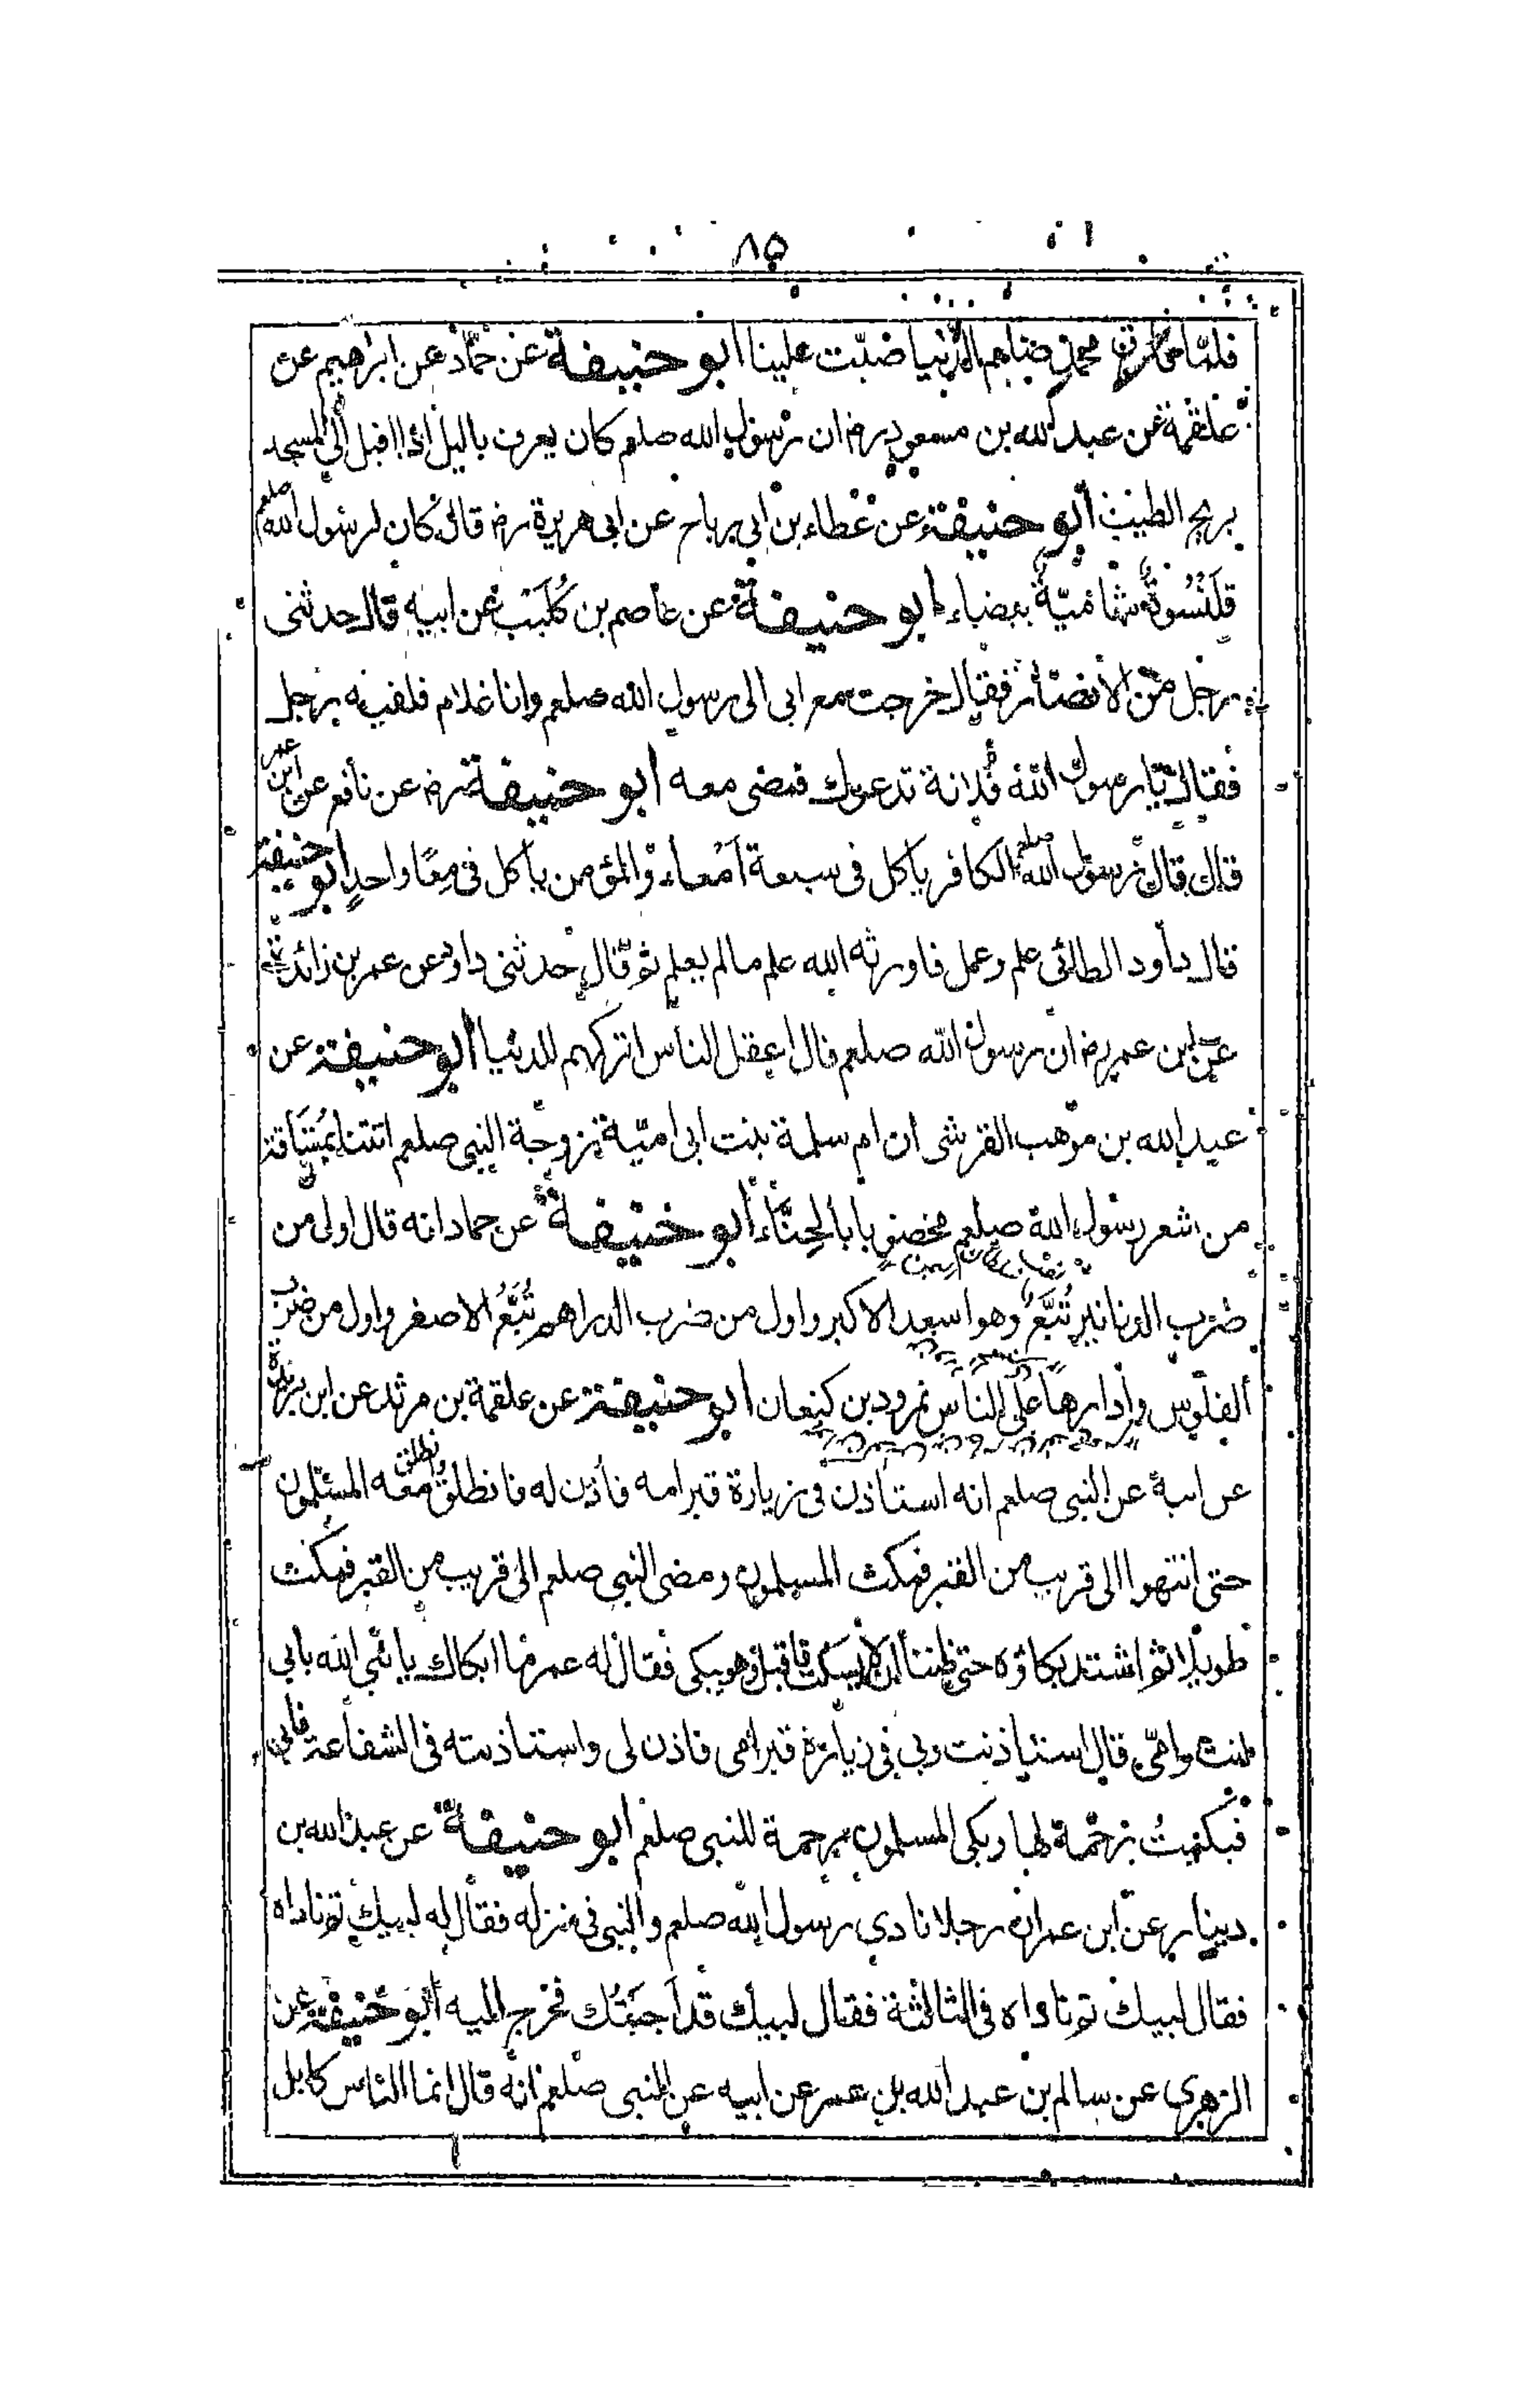 ٨٥
فلما فارق محمد صلعم الدنيا صبّت علينا ابو حنيفة عن حمّاد عن ابراهيم عن
علقمة عن عبد الله بن مسعود رض ان رسول الله صلعم كان يعرف باليل اذا اقبل الى المسجد
بريح الطيب ابو حنيفة عن عطاء بن ابى رباح عن ابى هريرة رض قال كان لرسول الله صلعم
قلنسوة شاميّة بيضاء ابو حنيفة عن عاصم بن كُلَيب عن ابيه قال حدثنى
رجل من الانصار فقال خرجت مع ابى الى رسول الله صلعم وانا غلام فلقيه رجل
فقال يا رسول الله فلانة تدعوك فمضى معه ابو حنيفة رض عن نافع عن ابن عمر
قال قال رسول الله صلعم الكافر ياكل فى سبعة اَمْعاء والمؤمن ياكل فى مِعًا واحدٍ ابو حنيفة
قال داود الطائى علم وعمل فاورثه الله علم مالم يعلم ثم قال حدثنى داود عن عمر بن زائدة
عن ابن عمر رض ان رسول الله صلعم قال اعقل الناس اتركهم للدنيا ابو حنيفة عن
عبد الله بن موهب القرشى ان ام سلمة بنت ابى اميّة زوجة النبى صلعم اتتنا بمُشَاقة
من شعر رسول الله صلعم مخضوبا بالحِنَّاء ابو حنيفة عن حماد انه قال اول من
ضرب الدنانير تُبَّعُ وهو اسعد الاكبر واول من ضرب الدراهم تُبَّعُ الاصغر واول من ضرب
الفلوس وأدارها على الناس نمرود بن كنعان ابو حنيفة عن علقمة بن مرثد عن ابن بريدة
عن ابيه عن النبى صلعم انه استاذن فى زيارة قبر امه فأذن له فانطلق وانطلق معه المسلمون
حتى انتهوا الى قريب من القبر فمكث المسلمون ومضى النبى صلعم الى قريب من القبر فمكث
طويلا ثم اشتد بكاؤه حتى ظننا انه لا يسكت فاقبل وهو يبكى فقال له عمر ما ابكاك يا نبي الله بابي
انت وامّي قال استاذنت ربي في زيارة قبر امى فاذن لى واستاذنته فى الشفاعة فابى
فبكيتُ رحمة لها وبكى المسلمون رحمة للنبى صلعم ابو حنيفة عن عبد الله بن
دينار عن ابن عمر ان رجلا نادي رسول الله صلعم والنبى فى منزله فقال له لبيك ثم ناداه
فقال لبيك ثم ناداه فى الثالثة فقال لبيك قد اَجَبْتُك فخرج اليه ابو حنيفة عن
الزهري عن سالم بن عبد الله بن عمر عن ابيه عن النبى صلعم انه قال انما الناس كابل